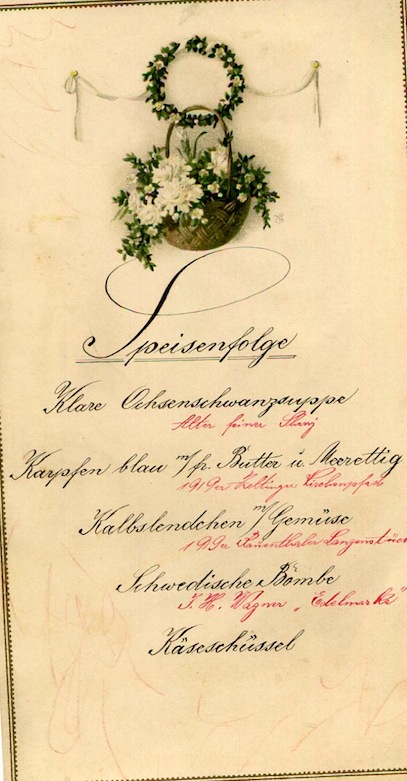 Speisenfolge
Klare Ochsenschwanzsuppe
Alter feiner Sherry
Karpfen blau m/fr. Butter u. Meerettig
1919er Zeltinger Kirchenpfad
Kalbslendchen m/Gemüse
1919er Rauenthaler Langenstück
Schwedische Bombe
J. H. Wagner "Edelmarke"
Käseschüssel